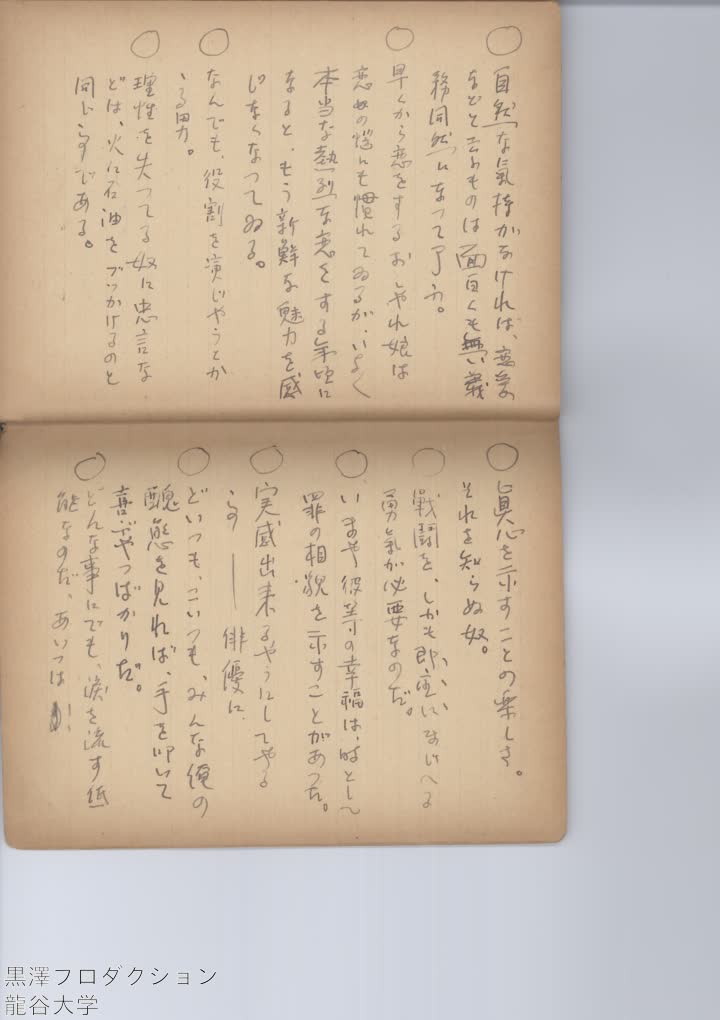 ○ 自然な気持がなければ、恋愛
などと云ふものは面白くも無い義
務同然になって了ふ。
○ 早くから恋をするおしやれ娘は
恋女の媚にも慣れてゐるが、いよく
本当な熱烈な恋をする年頃に
なると、もう新鮮な魅力を感
じなくなつてゐる。
○ なんでも、役割を演じやうとか
ゝる男。
○ 理性を失つてる奴に忠言な
どは、火に石油をブッかけるのと
同じ事である。
○ 真心を示すことの楽しさ。
それを知らぬ奴。
○ 戦闘を、しかも即座にまじへる
勇氣が必要なのだ。
○ いまや彼等の幸福は、時として
罪の相貌を示すことがあつた。
○ 実感出来るやうにしてやる
事 ── 俳優に
○ どいつも、こいつも、みんな俺の
醜態を見れば、手を叩いて
喜ぶやつばかりだ。
○ どんな事にでも、涙を流す
能なのだ、あいつは
黒澤フロダクション
龍谷大学